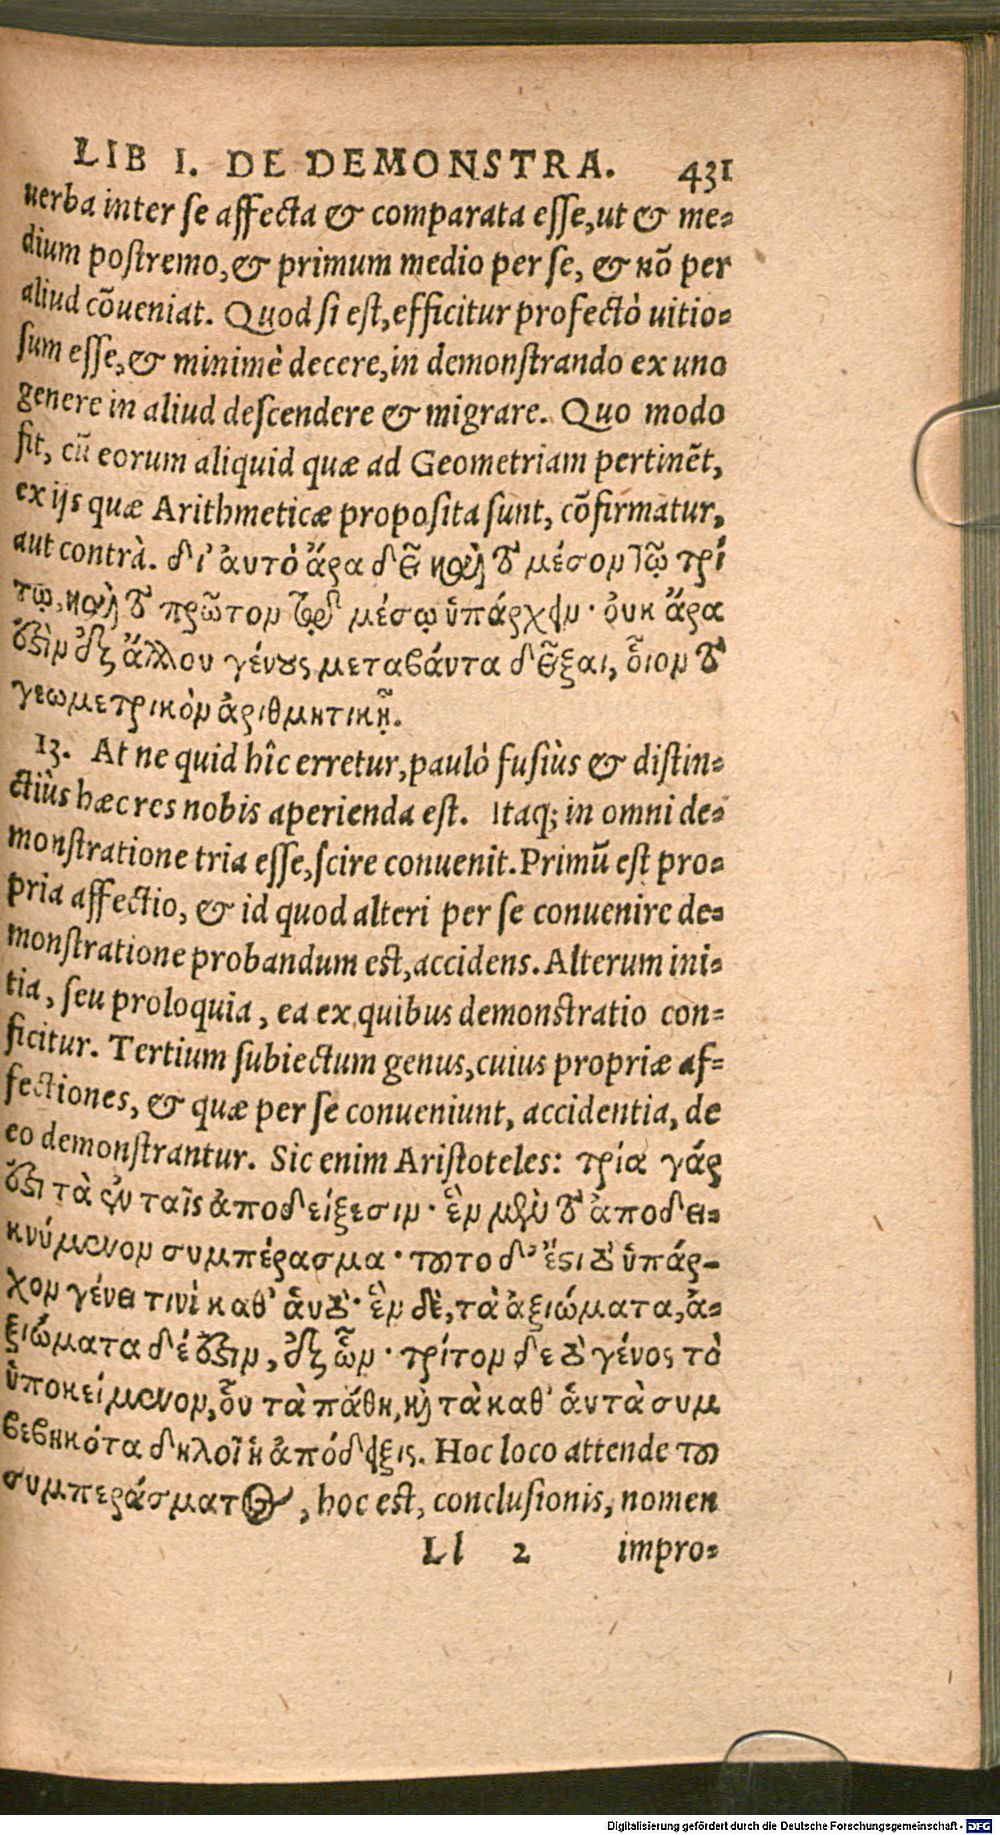 LIB I. DE DEMONSTRA. 431
uerba inter se affecta & comparata esse, ut & me-
dium postremo, & primum medio per se, & nõ per
aliud cõueniat. Quod si est, efficitur profectò uitio-
sum esse, & minimè decere, in demonstrando ex uno
genere in aliud descendere & migrare. Quo modo
fit, cũ eorum aliquid quæ ad Geometriam pertinẽt,
ex ijs quæ Arithmeticæ proposita sunt, cõfirmatur,
aut contrà. δι' ἀυτὸ ἄρα δεῖ καὶ τὸ μέσον τῷ τρί
τῳ, καὶ τὸ πρῶτον τῷ μέσῳ ὑπάρχειν· ὀυκ ἄρα
ἐστὶν ἐξ ἄλλου γένους μεταβάντα δεῖξαι, ὁῖον τὸ
γεωμετρικὸν ἀριθμητικῇ.
13. At ne quid hîc erretur, paulò fusiùs & distin-
ctiùs hæc res nobis aperienda est. Itaq; in omni de-
monstratione tria esse, scire conuenit. Primũ est pro-
pria affectio, & id quod alteri per se conuenire de-
monstratione probandum est, accidens. Alterum ini-
tia, seu proloquia, ea ex quibus demonstratio con-
ficitur. Tertium subiectum genus, cuius propriæ af-
fectiones, & quæ per se conueniunt, accidentia, de
eo demonstrantur. Sic enim Aristoteles: τρία γάρ
ἐστι τὰ ἐν ταῖς ἀποδείξεσιν· ἓν μὲν τὸ ἀποδει-
κνύμενον συμπέρασμα· τοῦτο δ' ἔστι τὸ ὑπάρ-
χον γένει τινὶ καθ' ἁυτὸ· ἓν δὲ, τὰ ἀξιώματα, ἀ-
ξιώματα δέ ἐστιν, ἐξ ὧν· τρίτον δε τὸ γένος τὸ
ὑποκείμενον, οὗ τὰ πάθη, καὶ τὰ καθ' ἁυτὰ συμ
βεβηκότα δηλοῖ ἡ ἀπόδειξις. Hoc loco attende τοῦ
συμπεράσματος, hoc est, conclusionis, nomen
Ll 2 impro-
Digitalisierung gefördert durch die Deutsche Forschungsgemeinschaft - DFG